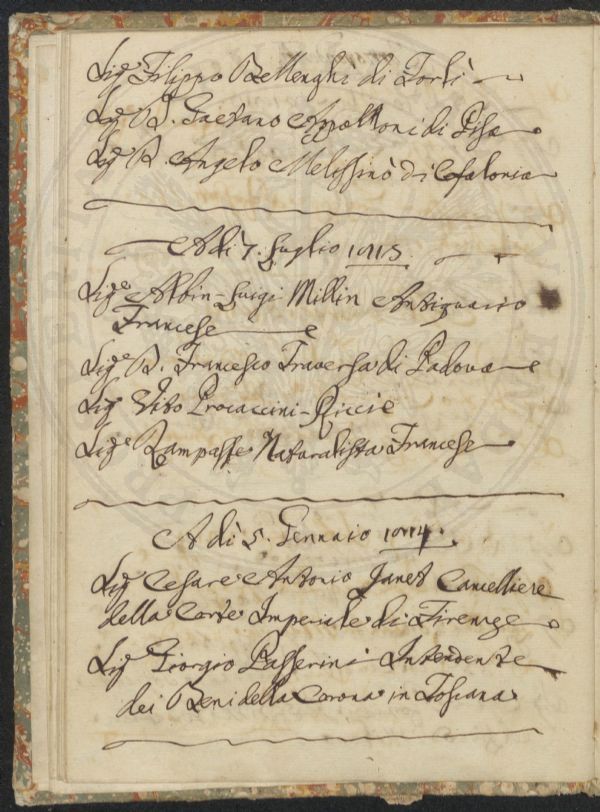 Sig.e Filippo Bellenghi di Forlì
Sig.e D. Gaetano Appolloni di Pisa
Sig.e D. Angelo Melissinò di Cefalonia
A dì 7. Luglio 1813
Sig.e Albin-Luigi Millin Antiquario
Francese
Sig.e D. Francesco Traversa di Padova
Sig.e Vito Procaccini-Riccie
Sig.e Rampasse Naturalista Francese
A dì 5. Gennaio 1814.
Sig.e Cesare Antonio Janet Cancelliere
della Corte Imperiale di Firenze
Sig.e Giorgio Passerini Intendente
dei Beni della Corona in Toscana